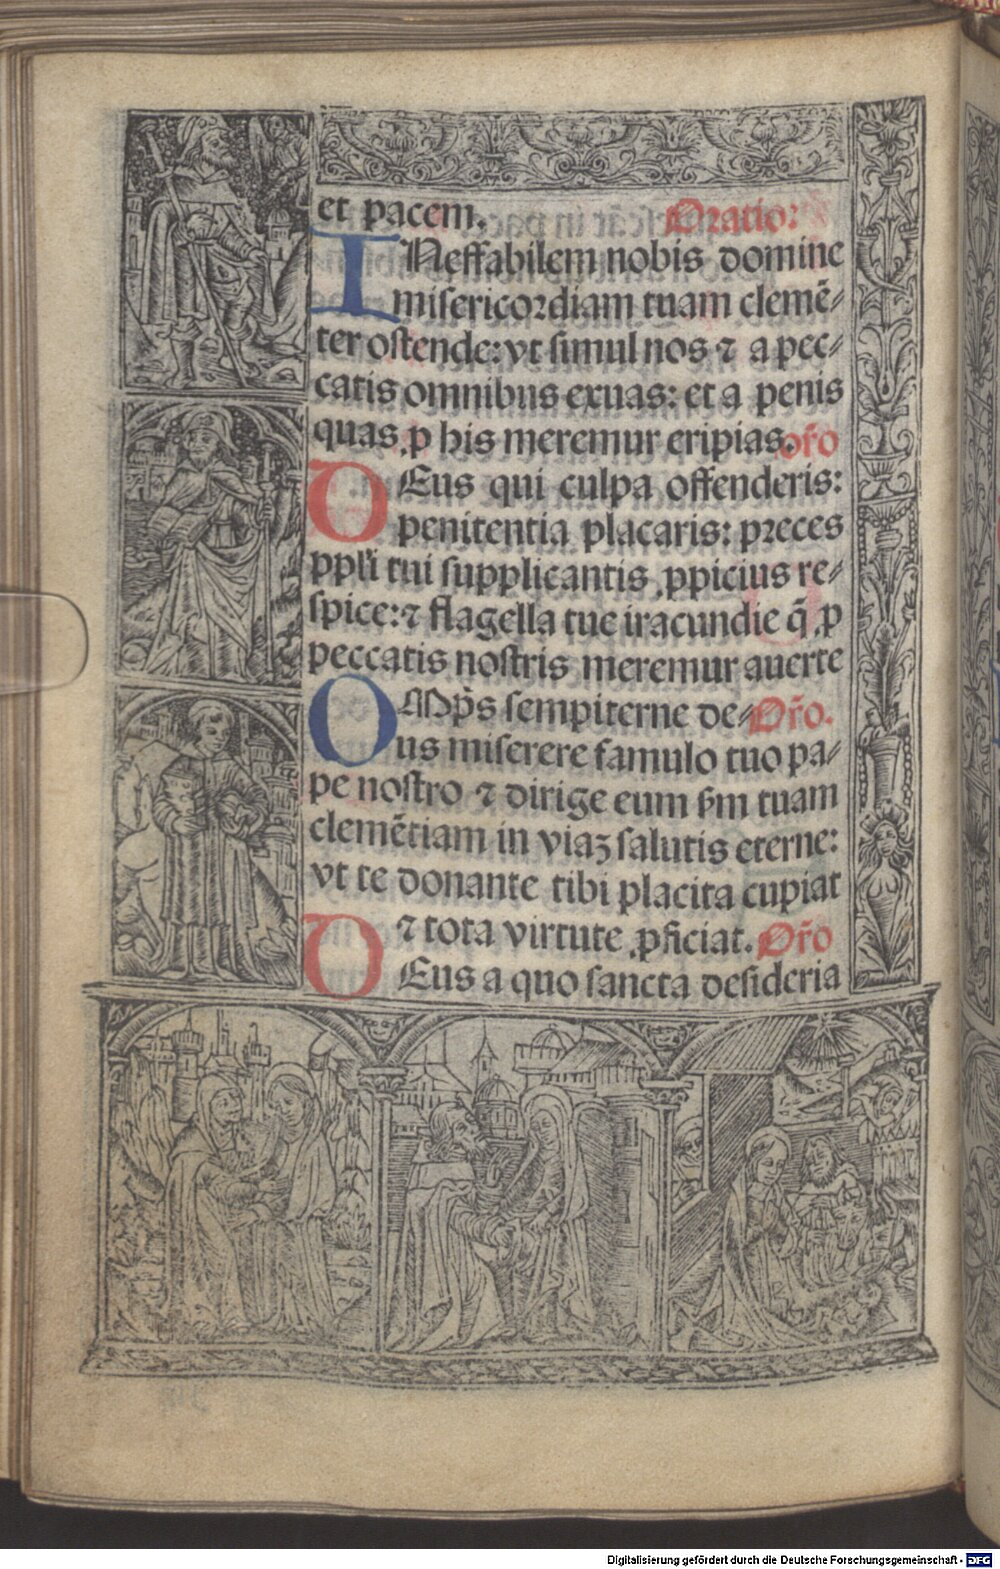 et pacem. Oratio:
INeffabilem nobis domine
misericordiam tuam clemē-
ter ostende: vt simul nos ⁊ a pec-
catis omnibus exuas: et a penis
quas ꝓ his meremur eripias. or̄o
DEus qui culpa offenderis:
penitentia placaris: preces
ppl'i tui supplicantis ꝓpicius re-
spice: ⁊ flagella tue iracundie q̄ ꝓ
peccatis nostris meremur auerte
OMp̄s sempiterne de- Or̄o.
us miserere famulo tuo pa-
pe nostro ⁊ dirige eum s̄m tuam
clemētiam in viaꝫ salutis eterne:
vt te donante tibi placita cupiat
⁊ tota virtute ꝓficiat. Or̄o
DEus a quo sancta desideria
Digitalisierung gefördert durch die Deutsche Forschungsgemeinschaft - DFG